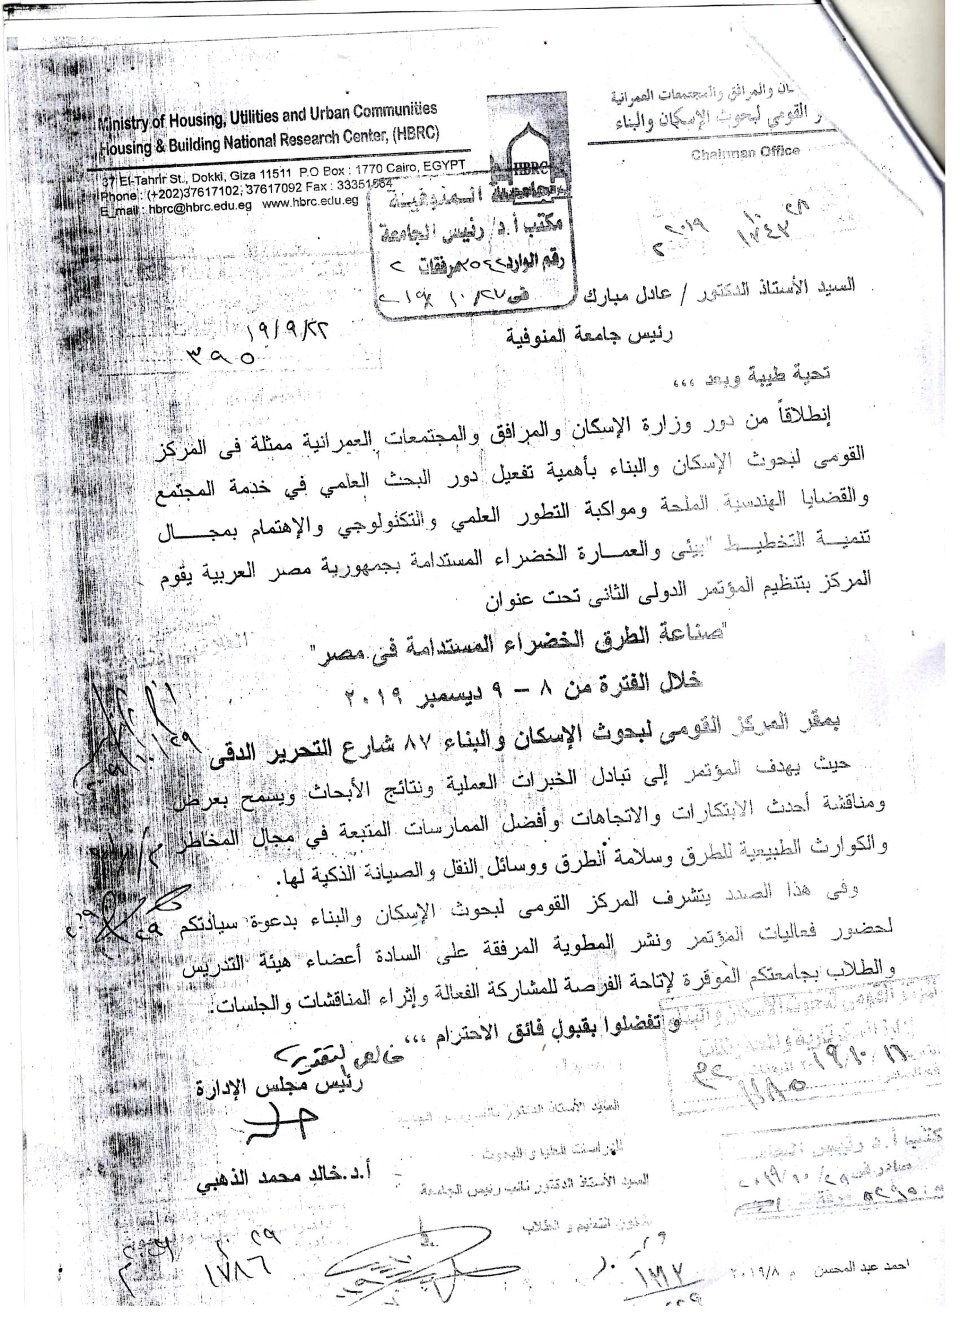 Ministry of Housing, Utilities and Urban Communities
Housing & Building National Research Center, (HBRC)
87 El-Tahrir St., Dokki, Giza 11511 P.O Box : 1770 Cairo, EGYPT
Phone : (+202)37617102, 37617092 Fax : 33351564
E_mail : hbrc@hbrc.edu.eg www.hbrc.edu.eg
HBRC
والمرافق والمجتمعات العمرانية
القومى لبحوث الإسكان والبناء
Chairman Office
جامعة المنوفية
مكتب أ.د/ رئيس الجامعة
رقم الوارد مرفقات ٢
فى ٢٧/ ١٠/
٢٨
١٠
٢٠١٩
١٧٤٣
٢
السيد الأستاذ الدكتور / عادل مبارك
رئيس جامعة المنوفية
١٩/٩/٢٢
٣٩٥
تحية طيبة وبعد ،،،
إنطلاقاً من دور وزارة الإسكان والمرافق والمجتمعات العمرانية ممثلة فى المركز
القومى لبحوث الإسكان والبناء بأهمية تفعيل دور البحث العلمي في خدمة المجتمع
والقضايا الهندسية الملحة ومواكبة التطور العلمي والتكنولوجي والإهتمام بمجــــال
تنميـــة التخطيـــط بيئى والعمـــارة الخضراء المستدامة بجمهورية مصر العربية يقوم
المركز بتنظيم المؤتمر الدولى الثانى تحت عنوان
"صناعة الطرق الخضراء المستدامة فى مصر"
خلال الفترة من ٨ – ٩ ديسمبر ٢٠١٩
بمقر المركز القومى لبحوث الإسكان والبناء ٨٧ شارع التحرير الدقى
حيث يهدف المؤتمر إلى تبادل الخبرات العملية ونتائج الأبحاث ويسمح بعرض
ومناقشة أحدث الابتكارات والاتجاهات وأفضل الممارسات المتبعة في مجال المخاطر
والكوارث الطبيعية للطرق وسلامة الطرق ووسائل النقل والصيانة الذكية لها.
وفى هذا الصدد يتشرف المركز القومى لبحوث الإسكان والبناء بدعوة سيادتكم
لحضور فعاليات المؤتمر ونشر المطوية المرفقة على السادة أعضاء هيئة التدريس
والطلاب بجامعتكم الموقرة لإتاحة الفرصة للمشاركة الفعالة وإثراء المناقشات والجلسات.
وتفضلوا بقبول فائق الاحترام ،،،
خالص التقدير
رئيس مجلس الإدارة
أ.د.خالد محمد الذهبي
القومى لبحوث الاسكان والبناء
١١٨٥
السيد الأستاذ الدكتور نائب رئيس الجامعة
الدراسات العليا والبحوث
السيد الأستاذ الدكتور نائب رئيس الجامعة
شئون التعليم والطلاب
مكتب أ.د رئيس الجامعة
صادر فى ٢٨/ ١٠/ ٢٠١٩
٢٩
١٧٨٦
احمد عبد المحسن
٢٠١٩/٨